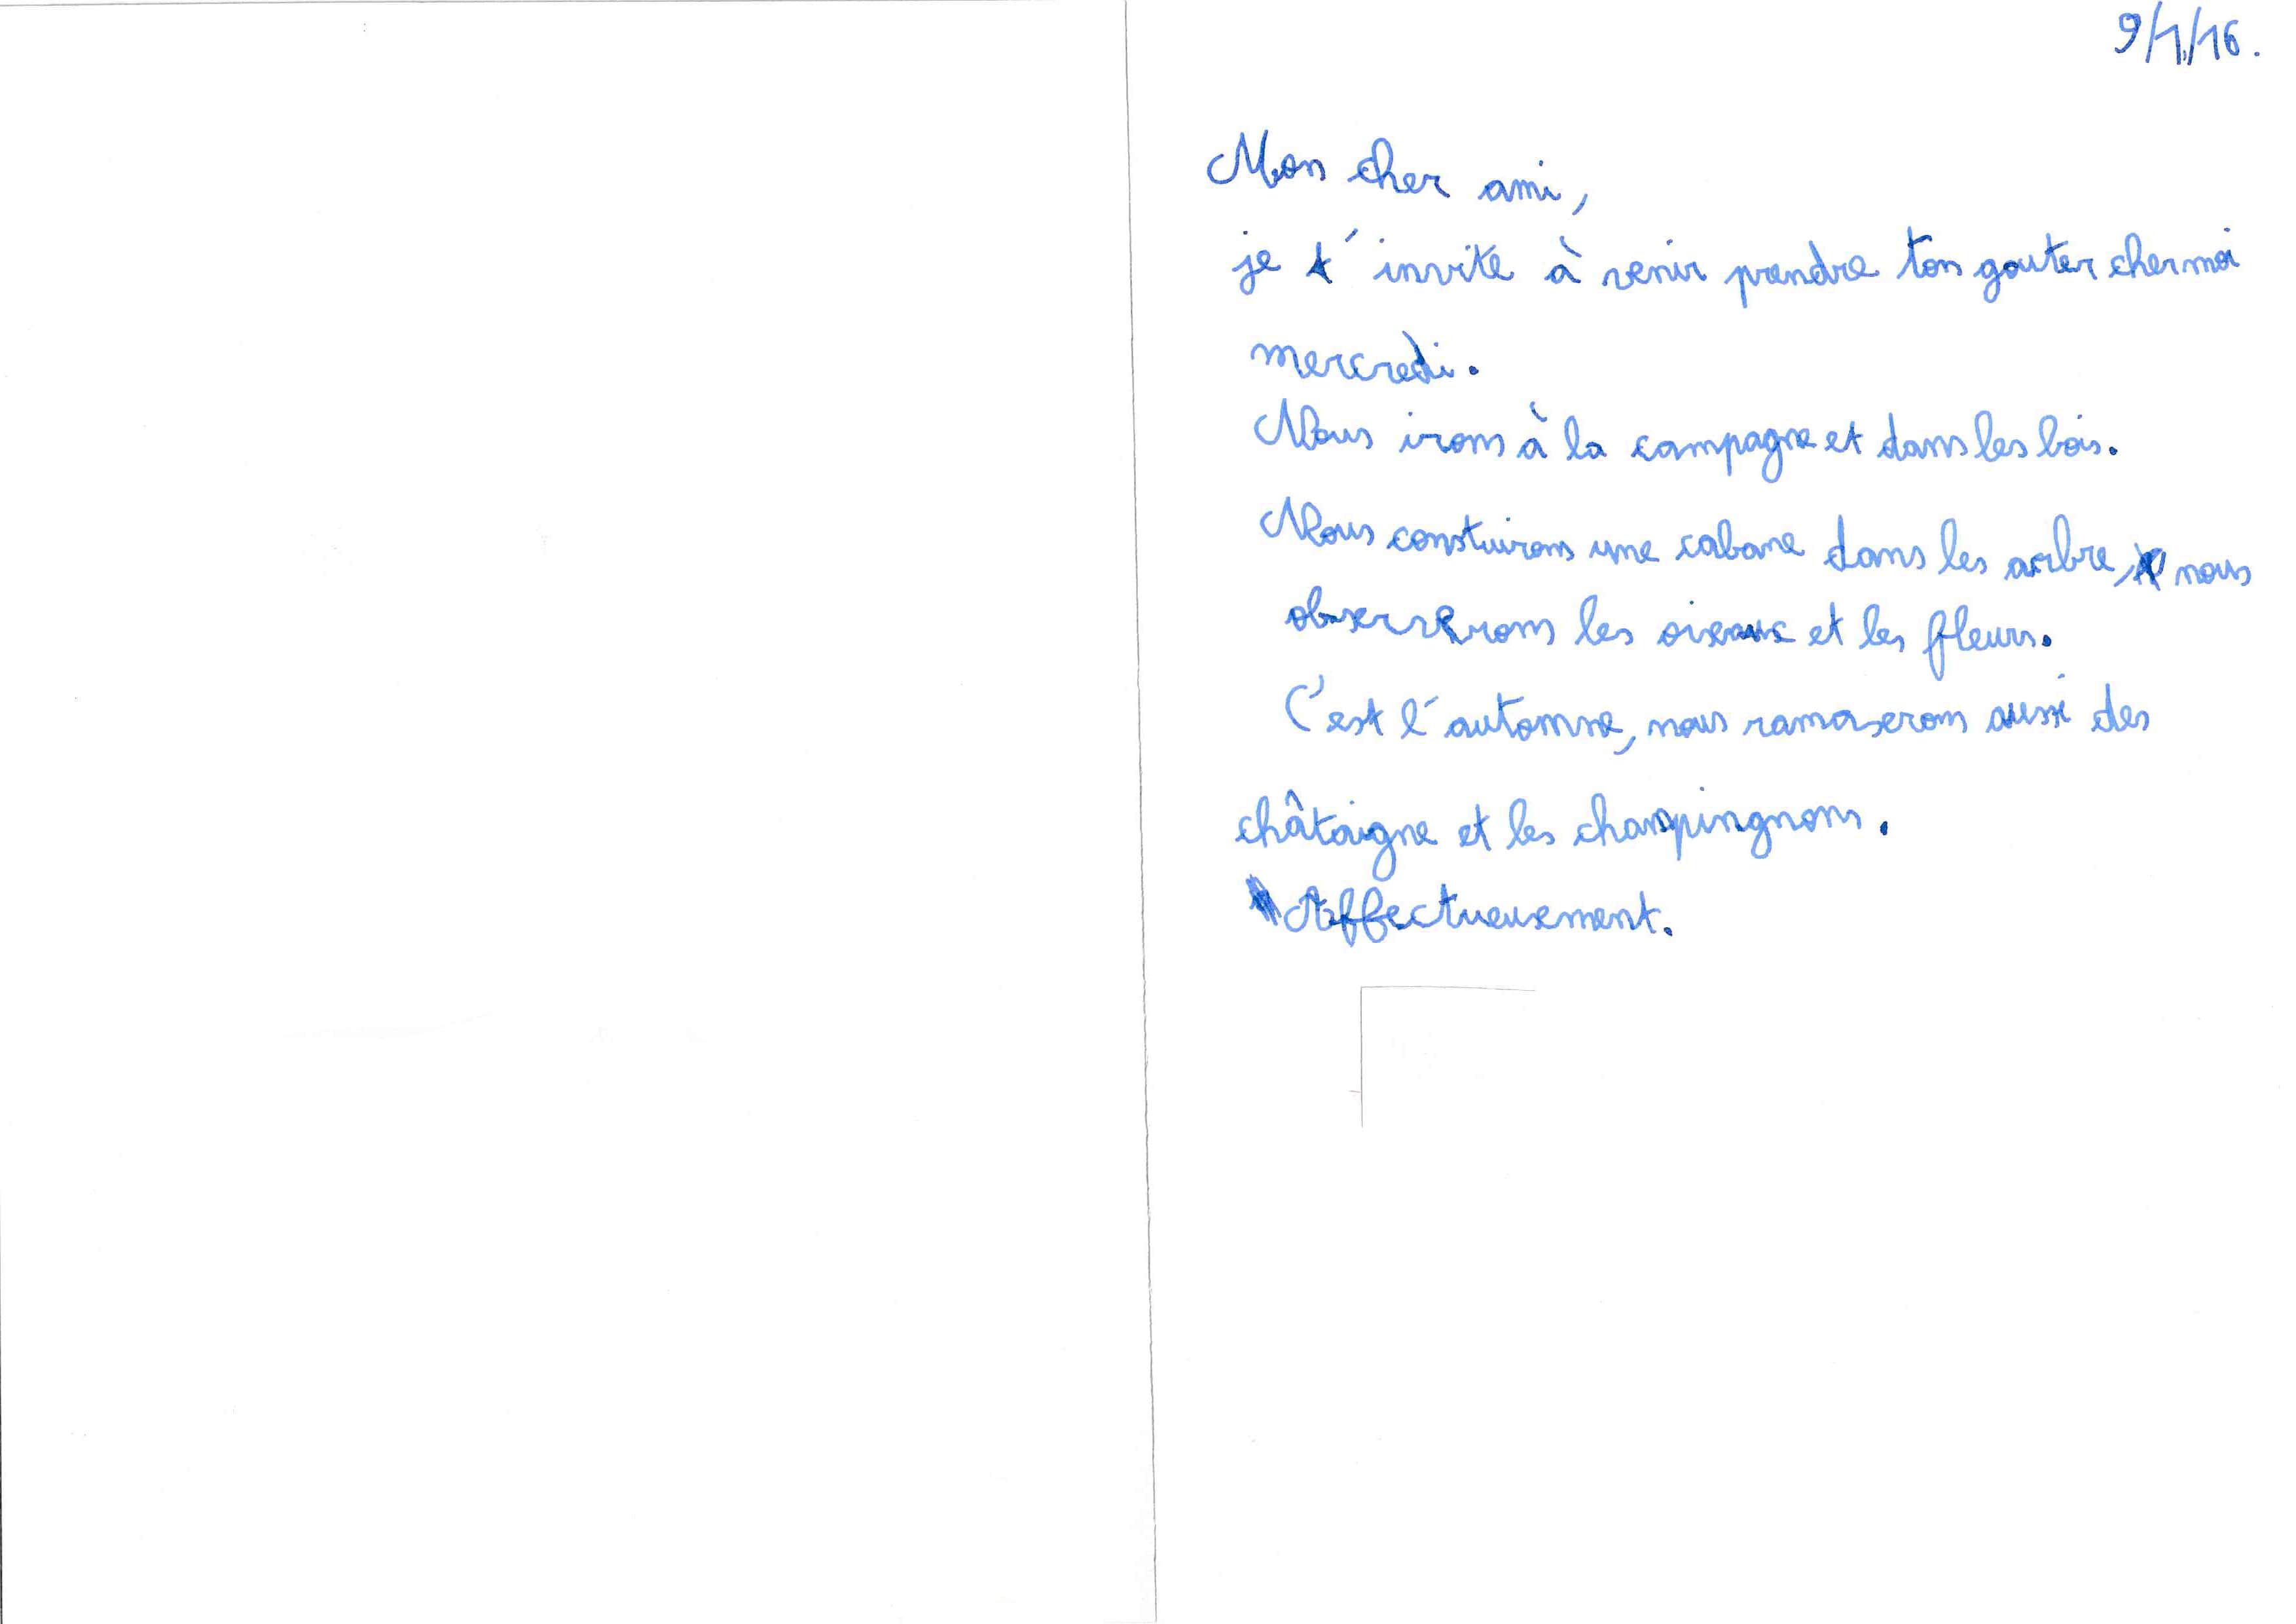 9/1/16.
Mon cher ami,
je t'invite à venir prendre ton gouter cher moi
mercredi.
Nous irons à la campagne et dans les bois.
Nous constuirons une cabane dans les arbre, nous
observerons les oiseaux et les fleurs.
C'est l'automne, nous ramaserons aussi des
châtaigne et les champingnons.
Affectueusement.